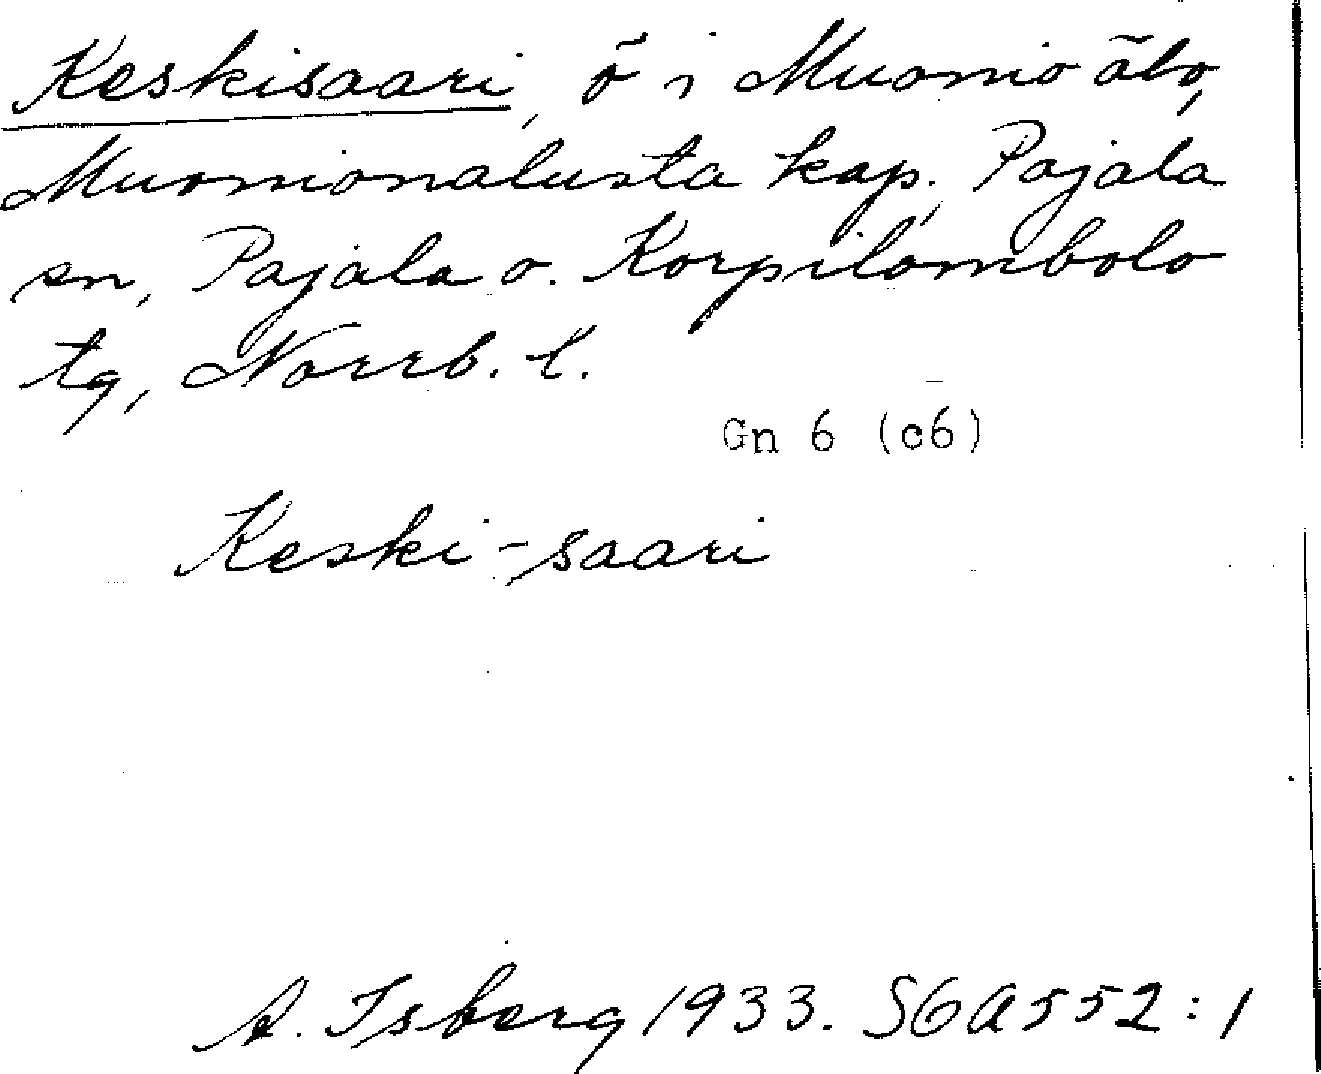 Keskisaari, ö i Muonio älv,
Muonionalusta kap., Pajala
sn, Pajala o. Korpilombolo
tg, Norrb. l.
Gn 6 (c6)
Keski-saari
A. Isberg 1933. SGA552:1